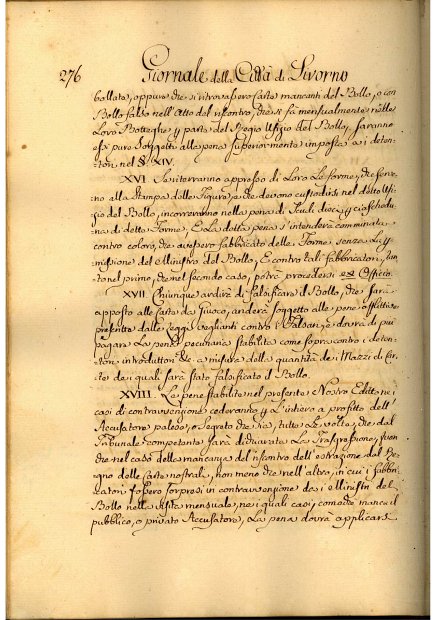 276 Giornale della Città di Livorno
bollate, oppure che si ritrovassero Carte mancanti del Bollo, o con
Bollo falso nell'Atto del riscontro, che si fà mensualmente nelle
Loro Botteghe p parte del Regio Ufizio del Bollo, saranno
essi pure Soggetti alle pena superiormente imposte a i deten-
tori nel §. XIV.
XVI. Se riterranno appresso di Loro Le forme, che servo-
no alla Stampa delle Figure, che devono custodirsi nel detto Ufi-
zio del Bollo, incorreranno nella pena di Scudi dieci p ciaschedu-
na di dette Forme, E La detta pena s'intenderà comminata
contro coloro, che avessero fabbricato delle Forme senza La p-
missione del Ministro del Bollo, E contro tali fabbricatori, tan-
to nel primo, che nel secondo caso, potrà procedersi ex Officio.
XVII. Chiunque ardirà di falsificare il Bollo, che sarà
apposto alle Carte da Giuoco, anderà soggetto alle pene afflittive
prescritte dalle Leggi veglianti contro i Falsarj, e dovrà di più
pagare La pena pecuniaria stabilita come sopra contro i deten-
tori, introduttori &c. a misura della quantità de i Mazzi di Car-
te de i quali sarà stato falsificato il Bollo.
XVIII. Le pene stabilite nel presente Nostro Editto ne i
casi di contravvenzione cederanno p L'intiero a profitto dell'
Accusatore palese, o segreto che sia, tutte Le volte, che dal
Tribunale competente sarà dichiarata La Trasgressione, fuori
che nel caso della mancanza del riscontro dell'estrazione dal Re-
gno delle Carte nostrali, non meno che nell'altro, in cui i fabbri-
catori fossero sorpresi in contravvenzione da i Ministri del
Bollo nella visita mensuale, ne i quali casi, come che manca il
pubblico, o privato Accusatore, La pena dovrà applicarsi